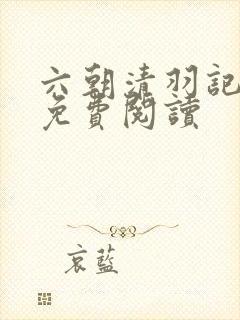 六朝清羽記
免費閱讀
哀藍